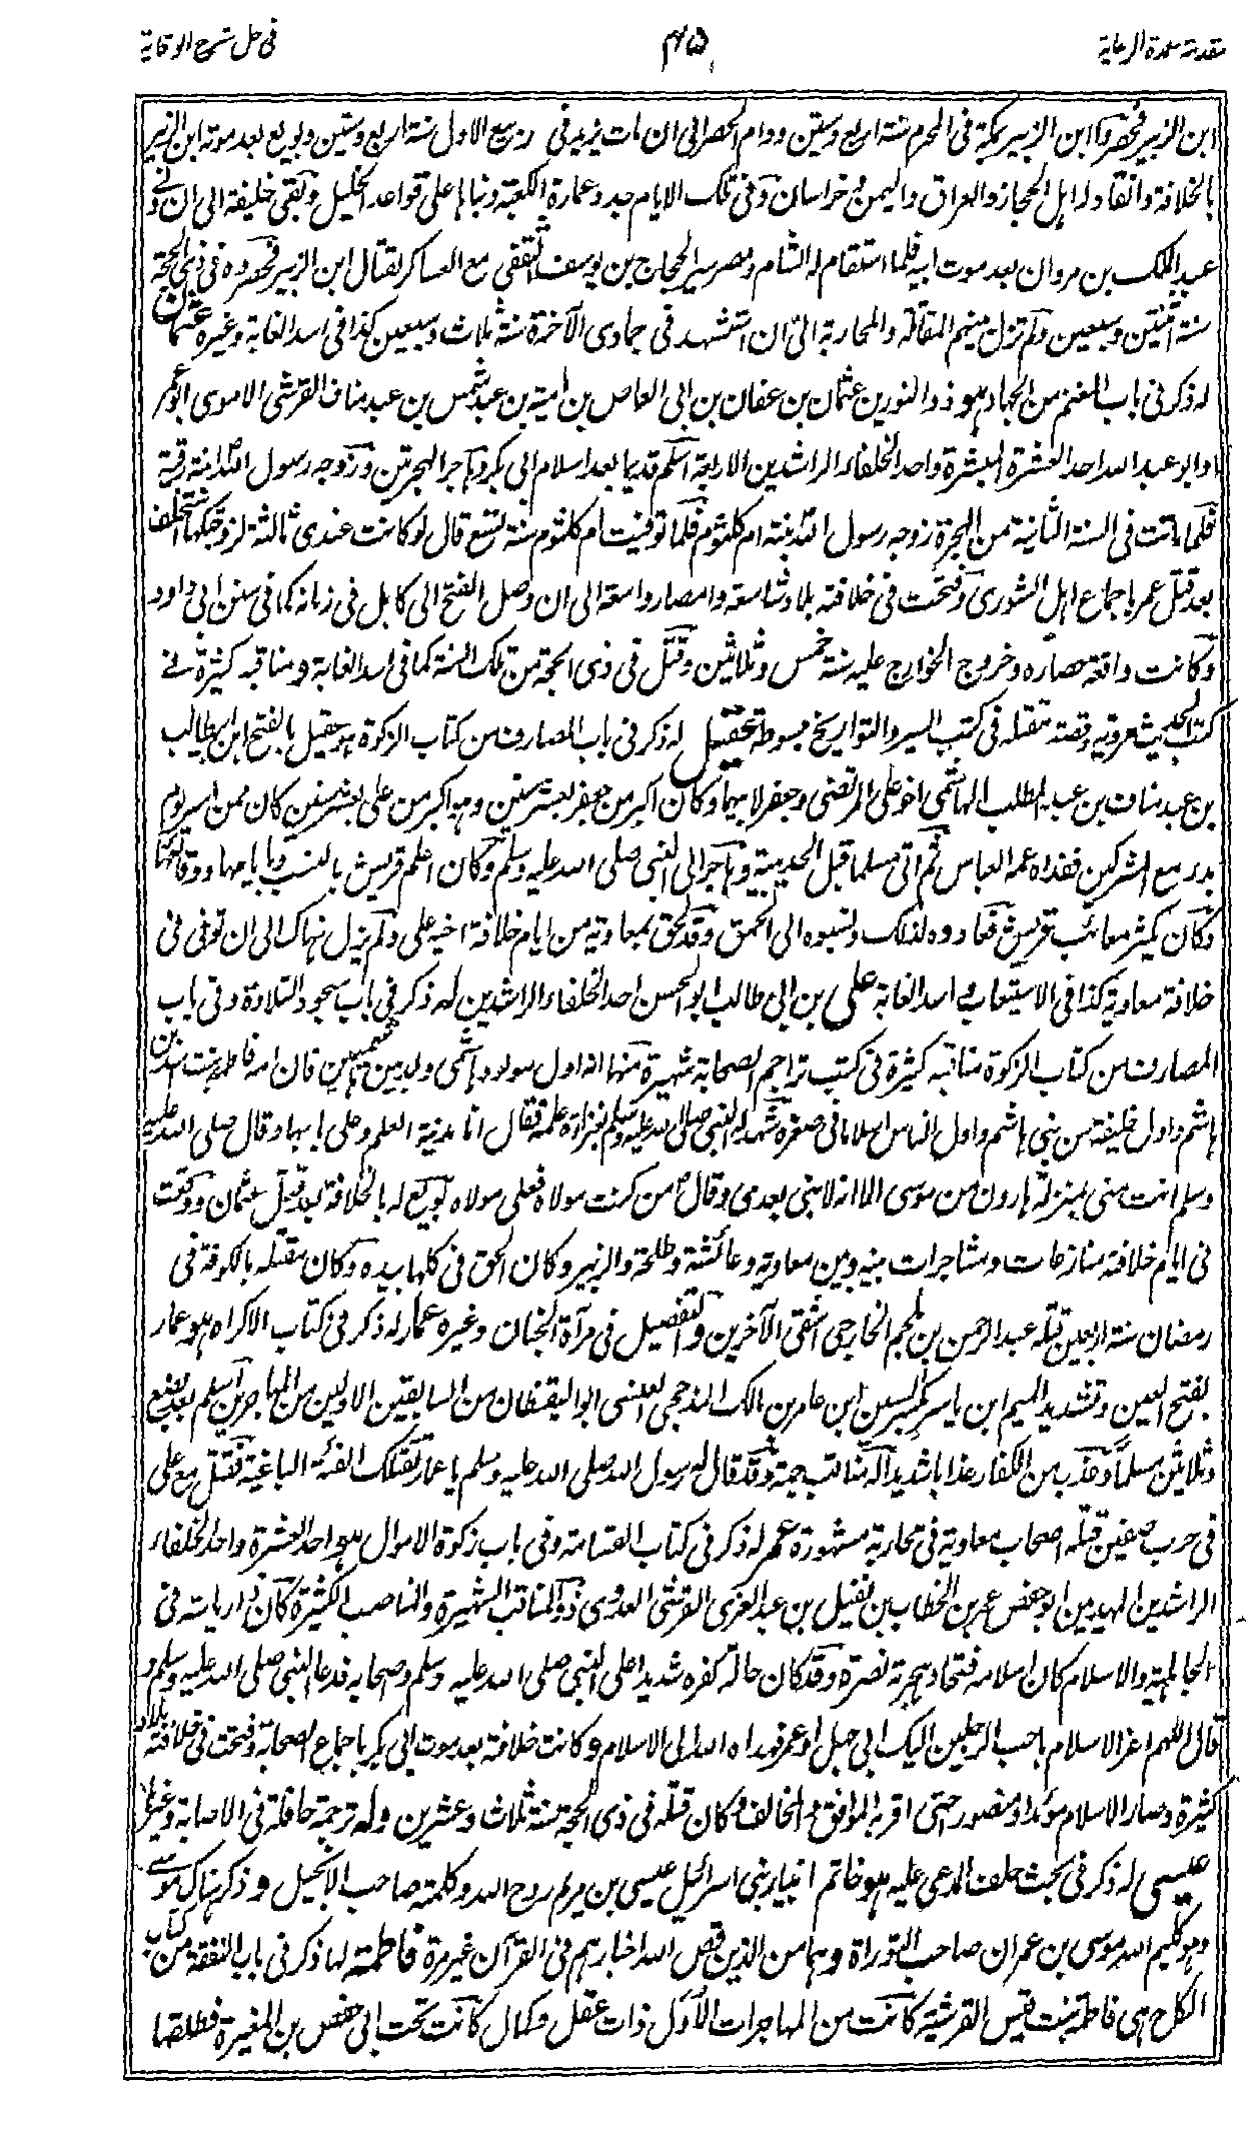 مقدمة عمدة الرعاية
٤٥
فى حل شرح الوقاية
ابن الزبير فحصروا ابن الزبير بمكة فى المحرم سنة اربع وستين ودام الحصر الى ان مات يزيد فى ربيع الاول سنة اربع وستين وبويع بعد موته ابن الزبير
بالخلافة وانقاد له اهل الحجاز والعراق واليمن وخراسان وفى تلك الايام جدد عمارة الكعبة وبناها على قواعد الخليل وبقى خليفة الى ان ولى
عبد الملك بن مروان بعد موت ابيه فلما استقام له الشام ومصر سير الحجاج بن يوسف الثقفى مع العساكر لقتال ابن الزبير فحصره فى ذى الحجة
سنة اثنتين وسبعين ولم تزل بينهم المقاتلة والمحاربة الى ان استشهد فى جمادى الآخرة سنة ثلاث وسبعين كذا فى اسد الغابة وغيره عثمان
له ذكر فى باب المغنم من الجهاد هو ذو النورين عثمان بن عفان بن ابى العاص بن امية بن عبد شمس بن عبد مناف القرشى الاموى ابو عمر
وابو عبد الله احد العشرة المبشرة واحد الخلفاء الراشدين الاربعة اسلم قديما بعد اسلام ابى بكر وهاجر الهجرتين وزوجه رسول الله ابنته رقية
فلما ماتت فى السنة الثانية من الهجرة زوجه رسول الله بنته ام كلثوم فلما توفيت ام كلثوم سنة تسع قال لو كانت عندى ثالثة لزوجتكها استخلف
بعد قتل عمر باجماع اهل الشورى وفتحت فى خلافته بلاد شاسعة وامصار واسعة الى ان وصل الفتح الى كابل فى زمانه كما فى سنن ابى داود
وكانت واقعة حصاره وخروج الخوارج عليه سنة خمس وثلاثين وقتل فى ذى الحجة من تلك السنة كما فى اسد الغابة ومناقبه كثيرة فى
كتب الحديث مروية وقصة مقتله فى كتب السير والتواريخ مبسوطة عقيل له ذكر فى باب المصارف من كتاب الزكوة هو عقيل بالفتح ابن ابى طالب
بن عبد مناف بن عبد المطلب الهاشمى اخو على المرتضى وجعفر لابيهما وكان اكبر من جعفر بعشر سنين وهو اكبر من على بعشر سنين كان ممن اسر يوم
بدر مع المشركين ففداه عمه العباس ثم اتى مسلما قبل الحديبية وهاجر الى النبى صلى الله عليه وسلم وكان اعلم قريش بالنسب وبايامها ووقائعها
وكان يكثر معائب قريش فعادوه لذلك ونسبوه الى الحمق وقد لحق بمعاوية من ايام خلافة اخيه على ولم يزل هناك الى ان توفى فى
خلافة معاوية كذا فى الاستيعاب واسد الغابة على بن ابى طالب ابو الحسن احد الخلفاء الراشدين له ذكر فى باب سجود التلاوة وفى باب
المصارف من كتاب الزكوة مناقبه كثيرة فى كتب تراجم الصحابة شهيرة منها انه اول مولود هاشمى ولد بين هاشميين فان امه فاطمة بنت اسد بن
هاشم واول خليفة من بنى هاشم واول الناس اسلاما فى صغره شهد له النبى صلى الله عليه وسلم بغزارة علمه فقال انا مدينة العلم وعلى بابها وقال صلى الله عليه
وسلم انت منى بمنزلة هارون من موسى الا انه لا نبى بعدى وقال من كنت مولاه فعلى مولاه بويع له بالخلافة بعد قتل عثمان ووقعت
فى ايام خلافته منازعات ومشاجرات بينه وبين معاوية وعائشة وطلحة والزبير وكان الحق فى كلها بيده وكان مقتله بالكوفة فى
رمضان سنة اربعين قتله عبد الرحمن بن ملجم الخارجى اشقى الآخرين والتفصيل فى مرآة الجنان وغيره عمار له ذكر فى كتاب الاكراه هو عمار
بفتح العين وتشديد الميم ابن ياسر بكسر السين ابن عامر بن مالك المذحجى العنسى ابو اليقظان من السابقين الاولين من المهاجرين اسلم بعد بضع
وثلاثين مسلما وعذب من الكفار عذابا شديدا له مناقب جمة وقد قال له رسول الله صلى الله عليه وسلم يا عمار تقتلك الفئة الباغية فقتل مع على
فى حرب صفين قتله اصحاب معاوية فى محاربة مشهورة عمر له ذكر فى كتاب القسامة وفى باب زكوة الاموال هو احد العشرة واحد الخلفاء
الراشدين المهديين ابو حفص عمر بن الخطاب بن نفيل بن عبد العزى القرشى العدوى ذو المناقب الشهيرة والمناصب الكثيرة كان ذا رياسة فى
الجاهلية والاسلام كان اسلامه فتحا وهجرته نصرة وقد كان حالة كفره شديدا على النبى صلى الله عليه وسلم وصحابه فدعا النبى صلى الله عليه وسلم و
قال اللهم اعز الاسلام باحب الرجلين اليك ابى جهل او عمر فهداه الله الى الاسلام وكانت خلافته بعد موت ابى بكر باجماع الصحابة وفتحت فى خلافته بلاد
كثيرة وصار الاسلام مؤيدا ومنصورا حتى اقر به الموافق والمخالف وكان قتله فى ذى الحجة سنة ثلاث وعشرين وله ترجمة حافلة فى الاصابة وغيرها
عيسى له ذكر فى بحث حلف المدعى عليه هو خاتم انبياء بنى اسرائيل عيسى بن مريم روح الله وكلمته صاحب الانجيل وذكر هناك موسى
وهو كليم الله موسى بن عمران صاحب التوراة وهما من الذين قص الله اخبارهم فى القرآن غير مرة فاطمة لها ذكر فى باب النفقة من كتاب
النكاح هى فاطمة بنت قيس القرشية كانت من المهاجرات الاول ذات عقل وكمال كانت تحت ابى حفص بن المغيرة فطلقها